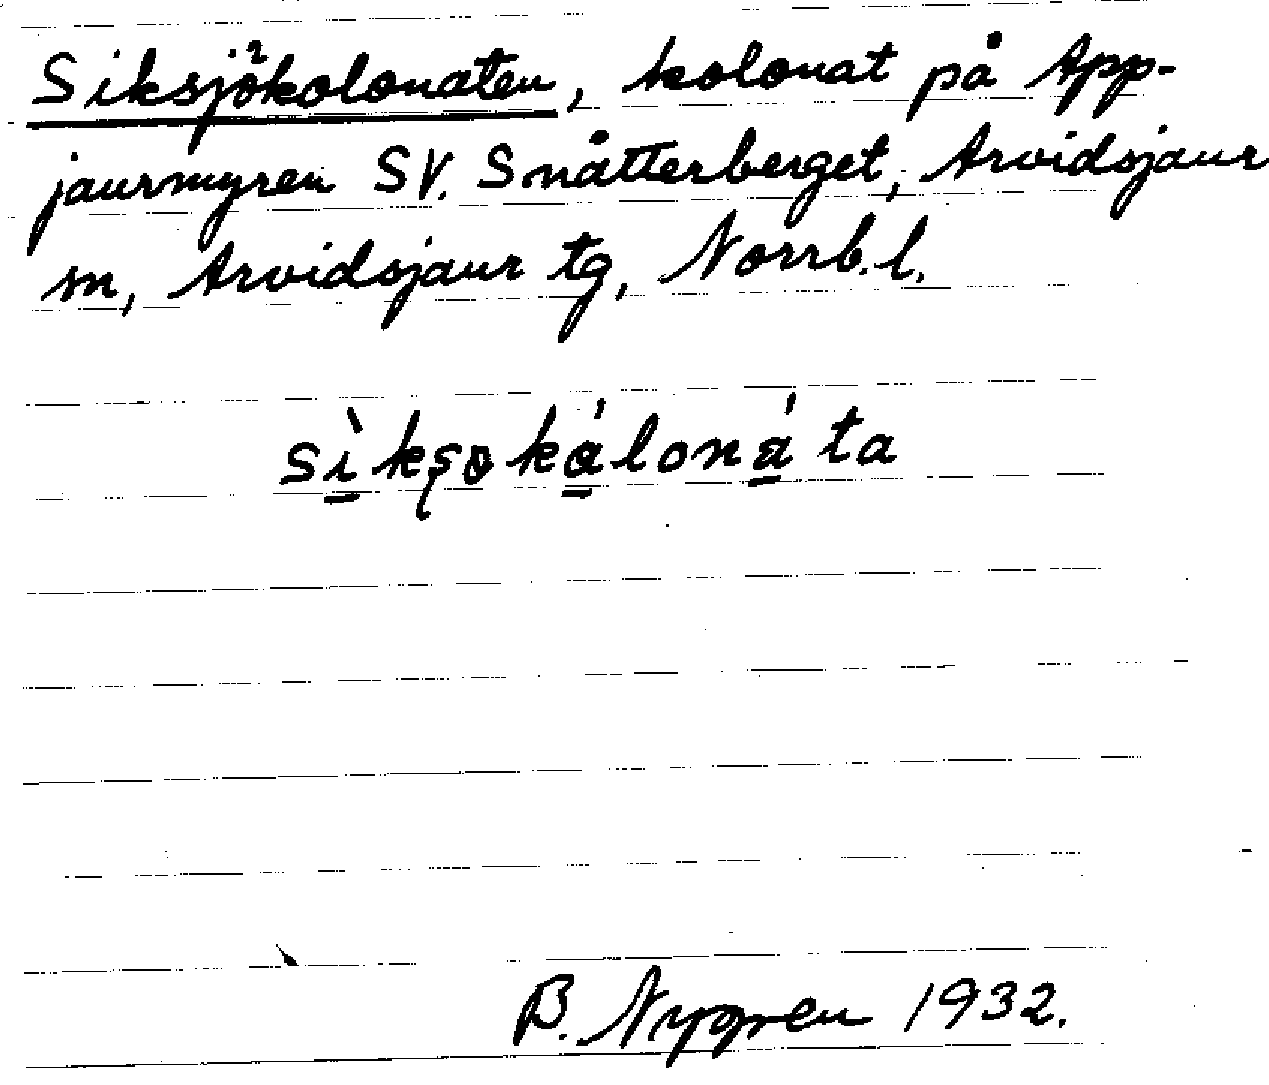 Siksjökolonaten, kolonat på App-
jaurmyren SV. Snåtterberget, Arvidsjaur
sn, Arvidsjaur tg, Norrb.l.
sìksokálonáta
B. Nygren 1932.